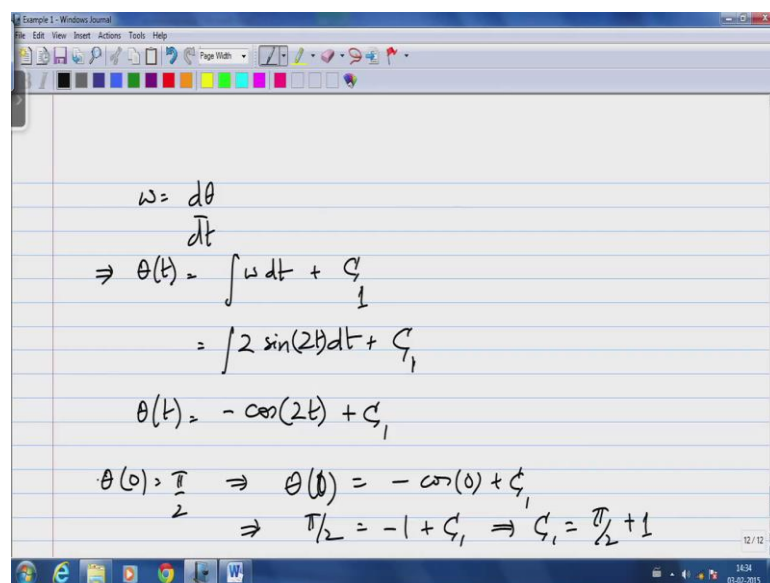 Example 1 - Windows Journal
File Edit View Insert Actions Tools Help
Page Width
ω = dθ
dt
⇒ θ(t) = ∫ω dt + C₁
= ∫2 sin(2t)dt + C₁
θ(t) = - cos(2t) + C₁
θ(0) = π/2 ⇒ θ(0) = - cos(0) + C₁
⇒ π/2 = -1 + C₁ ⇒ C₁ = π/2 + 1
12 / 12
14:34
03-02-2015